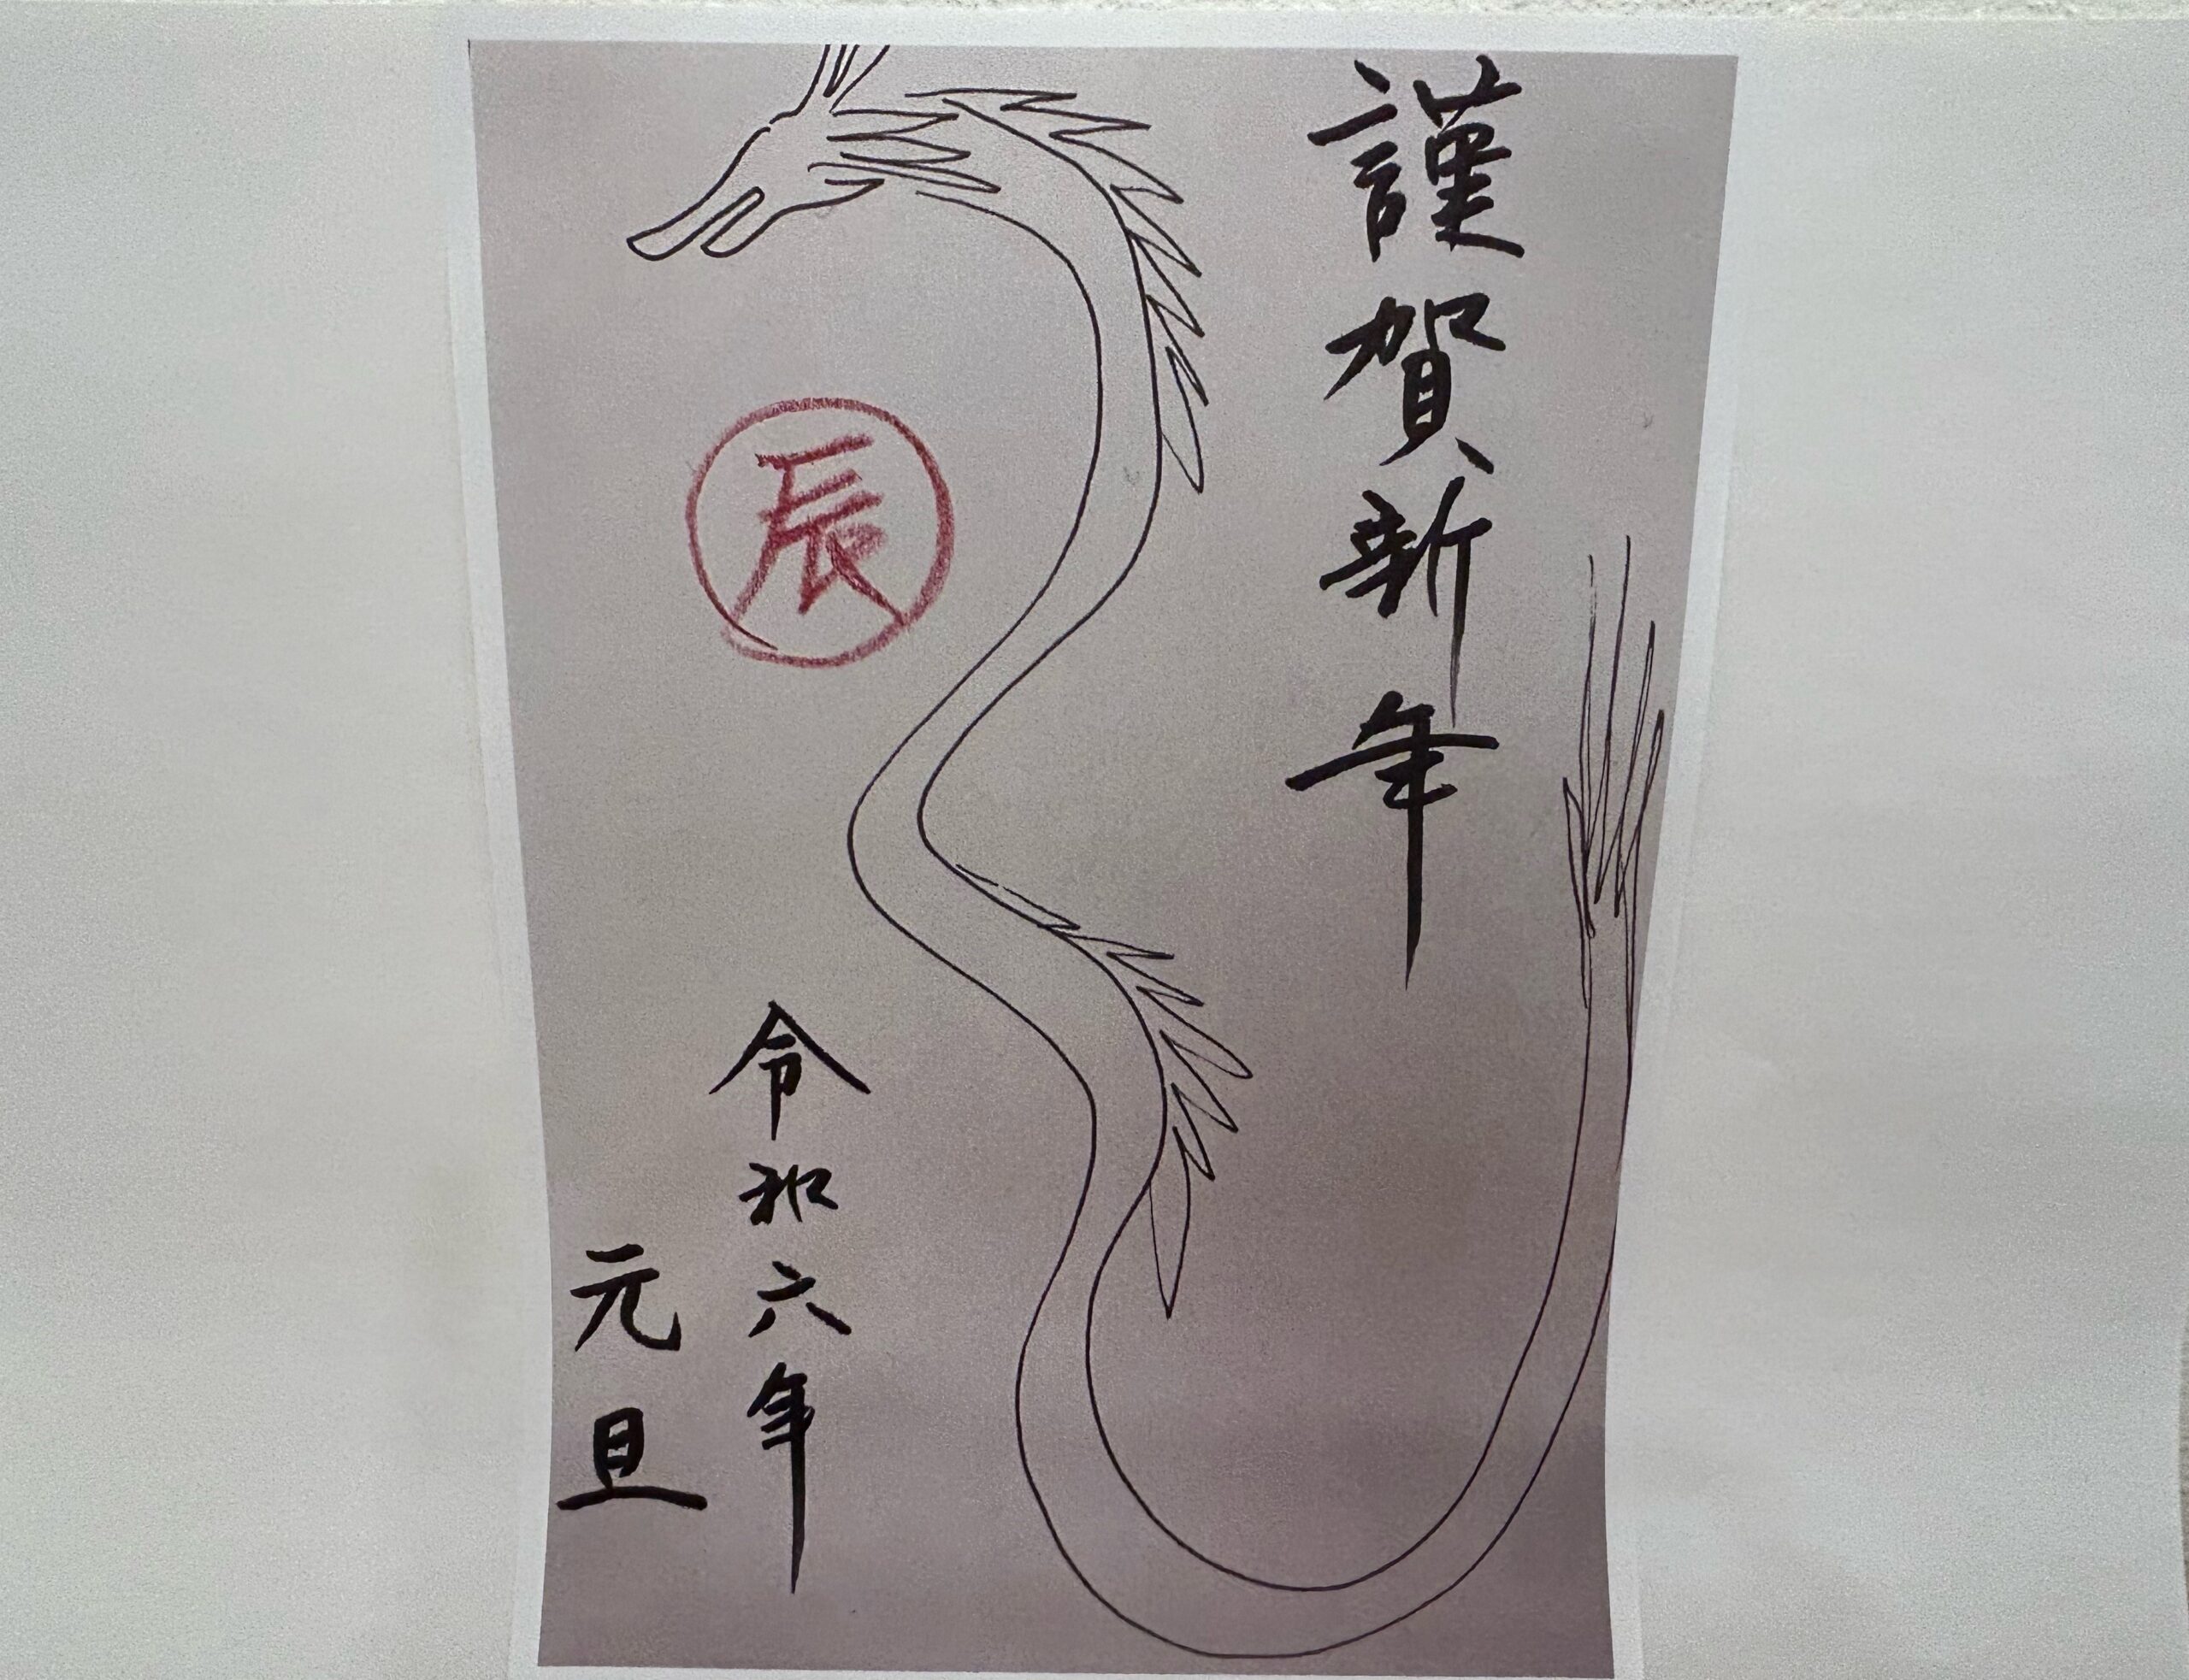 謹賀新年
辰
令和六年
元旦